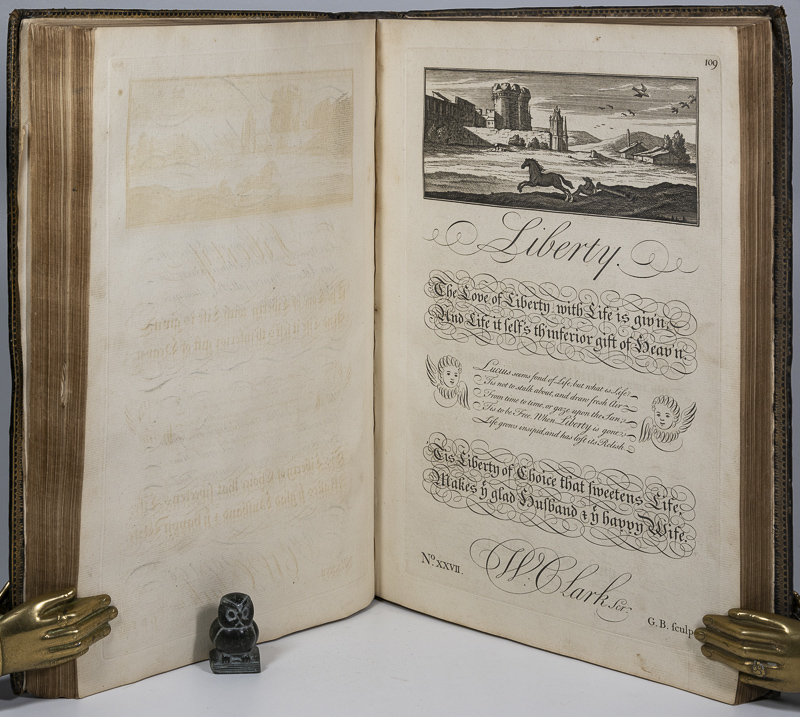 109
Liberty.
The Love of Liberty with Life is giv'n,
And Life it self's th'inferior gift of Heav'n.
Lucius seems fond of Life, but what is Life?
'Tis not to stalk about, and draw fresh Air
From time to time, or gaze upon the Sun;
'Tis to be Free. When Liberty is gone
Life grows insipid, and has lost its Relish
'Tis Liberty of Choice that sweetens Life;
Makes ẙ glad Husband & ẙ happy Wife.
No. XXVII.
W. Clark Scr.
G. B. sculp